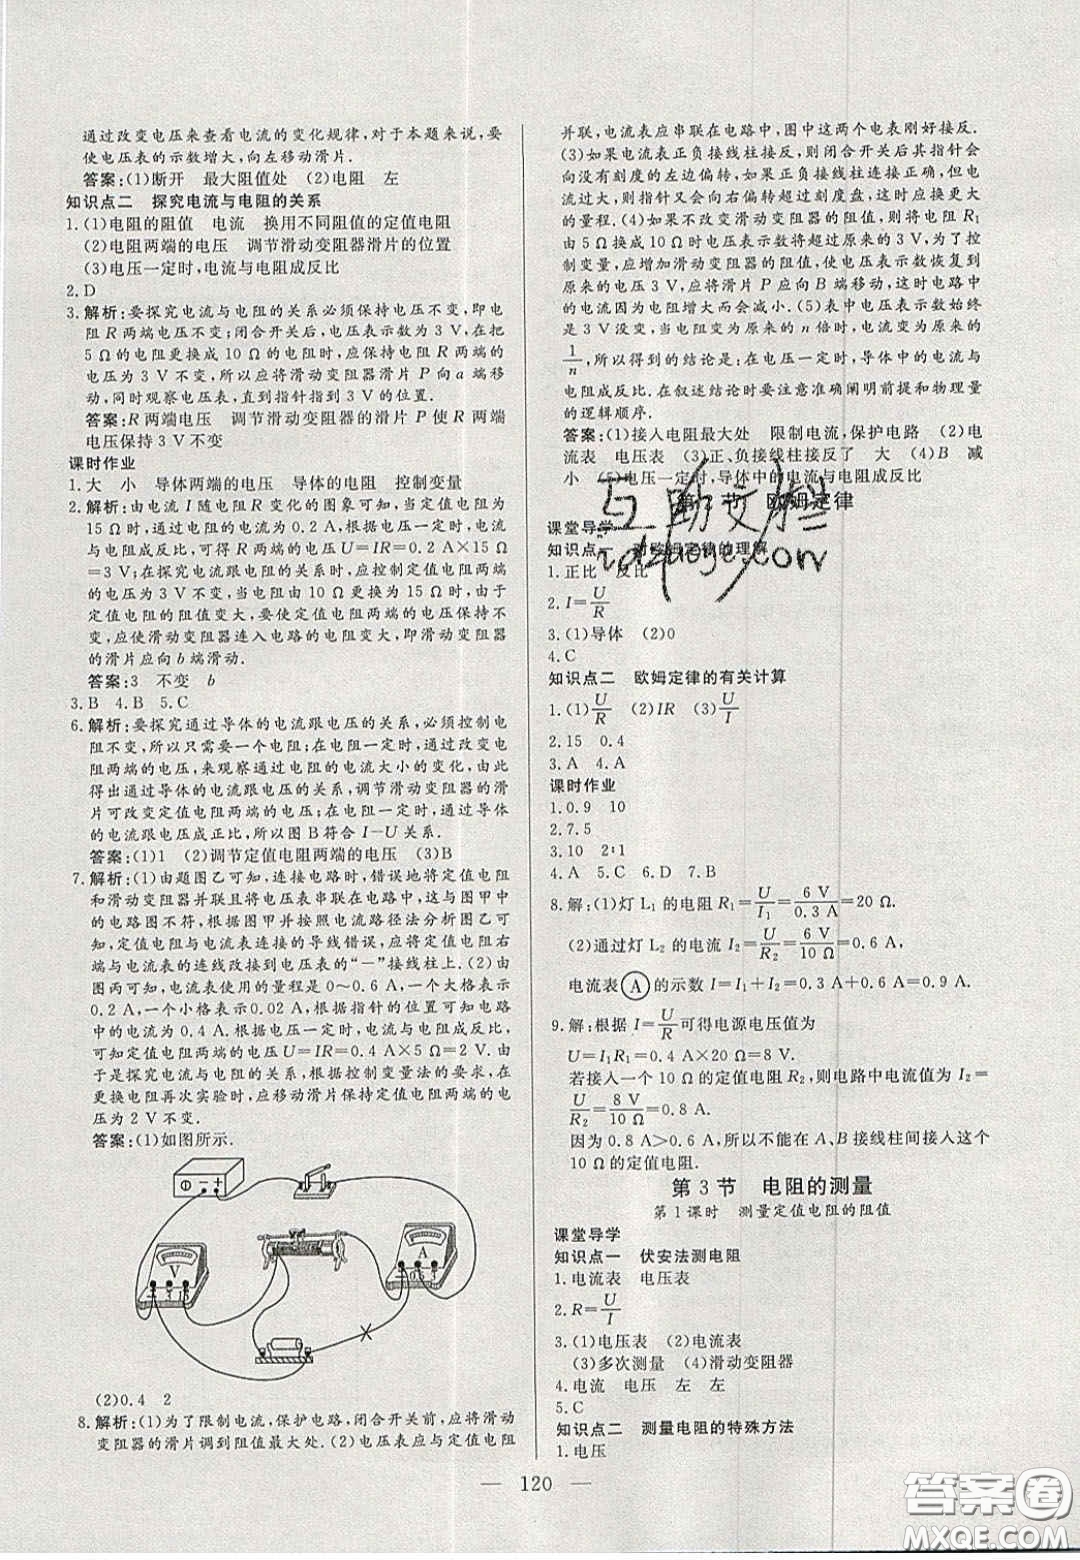 通过改变电压来查看电流的变化规律,对于本题来说,要
使电压表的示数增大,向左移动滑片.
答案:(1)断开 最大阻值处 (2)电阻 左
知识点二 探究电流与电阻的关系
1.(1)电阻的阻值 电流 换用不同阻值的定值电阻
(2)电阻两端的电压 调节滑动变阻器滑片的位置
(3)电压一定时,电流与电阻成反比
2.D
3.解析:要探究电流与电阻的关系必须保持电压不变,即电
阻 R 两端电压不变;闭合开关后,电压表示数为 3 V,在把
5 Ω的电阻更换成 10 Ω的电阻时,应保持电阻 R 两端的
电压为 3 V 不变,所以应将滑动变阻器滑片 P 向 a 端移
动,同时观察电压表,直到指针指到 3 V 的位置.
答案:R 两端电压 调节滑动变阻器的滑片 P 使 R 两端
电压保持 3 V 不变
课时作业
1.大 小 导体两端的电压 导体的电阻 控制变量
2.解析:由电流 I 随电阻 R 变化的图象可知,当定值电阻为
15 Ω时,通过电阻的电流为 0.2 A,根据电压一定时,电流
与电阻成反比,可得出电压 U=IR=0.2 A×15 Ω=
3 V.在探究电流跟电阻的关系时,应控制定值电阻两端
的电压不变,当电阻由 10 Ω更换为 15 Ω时,由于接入电
路中定值电阻的阻值变大,要使定值电阻两端的电压保持不
变,应使滑动变阻器连入电路的电阻变大,即滑动变阻器
的滑片应向 b 端滑动.
答案:3 不变 b
3.B 4.B 5.C
6.解析:要探究通过导体的电流跟电压的关系,必须控制电
阻不变,所以只需要一个电阻;在电阻一定时,通过改变电
阻两端的电压,来观察通过电阻的电流大小的变化,由此得
出通过导体的电流跟电压的关系,调节滑动变阻器的滑
片可改变定值电阻两端的电压;电阻一定时,通过导体的
电流跟电压成正比,所以图 B 符合 I-U 关系.
答案:(1)1 (2)调节定值电阻两端的电压 (3)B
7.解析:(1)由题图乙可知,连接电路时,错误地将定值电阻
和滑动变阻器并联且将电压表串联在电路中,这与图甲中
的电路图不符,根据图甲并按照电流路径法分析图乙可
知,定值电阻与电流表连接的导线错误,应将定值电阻右
端与电流表的连线改接到电压表的“-”接线柱上.(2)由
图丙可知,电流表使用的量程是 0~0.6 A,一大格表示
0.2 A,一小格表示 0.02 A,根据指针的位置可知电路
中的电流为 0.4 A.根据电压一定时,电流与电阻成反比,
可知定值电阻两端的电压 U=IR=0.4 A×5 Ω=2 V.由
于是探究电流与电阻的关系,根据控制变量法的要求,在
更换电阻再次实验时,应移动滑片保持定值电阻两端的电
压为 2 V 不变.
答案:(1)如图所示.
V
A
(2)0.4 2
8.解析:(1)为了限制电流,保护电路,闭合开关前,应将滑动
变阻器的滑片调到阻值最大处.(2)电压表应与定值电阻
并联,电流表应串联在电路中,图中这两个电表刚好接反.
(3)如果电流表正负接线柱接反,闭合开关后其指针会
向没有刻度的左边偏转,应选择较大的量程;如果电
流过大,指针又会向右偏转超过最大刻度,应选择较大
的量程.(4)如果不改变滑动变阻器的阻值,则将电阻 R₁
由 5 Ω换成 10 Ω时电压表示数将超过原来的 3 V,为了控
制变量,应增加滑动变阻器的阻值,使电压表示数恢复到
原来的 3 V,因此应将滑片 P 应向 B 端移动,这时电路中
的电流因为电阻增大而会减小.(5)表中电压表示数始终
是 3 V 没变,当电阻变为原来的 n 倍时,电流变为原来的
1/n,所以得到的结论是:电压一定时,导体中的电流与
电阻成反比.在叙述结论时要注意准确阐明前提和物理量
的逻辑顺序.
答案:(1)接入电阻最大处 限制电流,保护电路 (2)电
流表 电压表 (3)正、负接线柱接反 大 (4)B 减
小 (5)电压一定时,导体中的电流与电阻成反比
节 欧姆定律
互助文档
课堂导学
知识点一 对欧姆定律的理解
1.正比 反比
2.I=U/R
3.(1)导体 (2)0
4.C
知识点二 欧姆定律的有关计算
1.(1)U/R (2)IR (3)U/I
2.15 0.4
3.A 4.A
课时作业
1.0.9 10
2.7.5
3.10 2:1
4.A 5.C 6.D 7.B
8.解:(1)灯 L₁ 的电阻 R₁=U/I₁=6 V/0.3 A=20 Ω.
(2)通过灯 L₂ 的电流 I₂=U/R₂=6 V/10 Ω=0.6 A,
电流表 A 的示数 I=I₁+I₂=0.3 A+0.6 A=0.9 A.
9.解:根据 I=U/R可得电源电压值为
U=I₁R₁=0.4 A×20 Ω=8 V.
若接入一个 10 Ω的定值电阻 R₂,则电路中电流值为 I₂=
U/R₂=8 V/10 Ω=0.8 A.
因为 0.8 A>0.6 A,所以不能在 A、B 接线柱间接入这个
10 Ω的定值电阻.
第 3 节 电阻的测量
第 1 课时 测量定值电阻的阻值
课堂导学
知识点一 伏安法测电阻
1.电流表 电压表
2.R=U/I
3.(1)电压表 (2)电流表
(3)多次测量 (4)滑动变阻器
4.电流 电压 左 左
5.C
知识点二 测量电阻的特殊方法
1.电压
— 120 —
答案圈
MXQE.COM